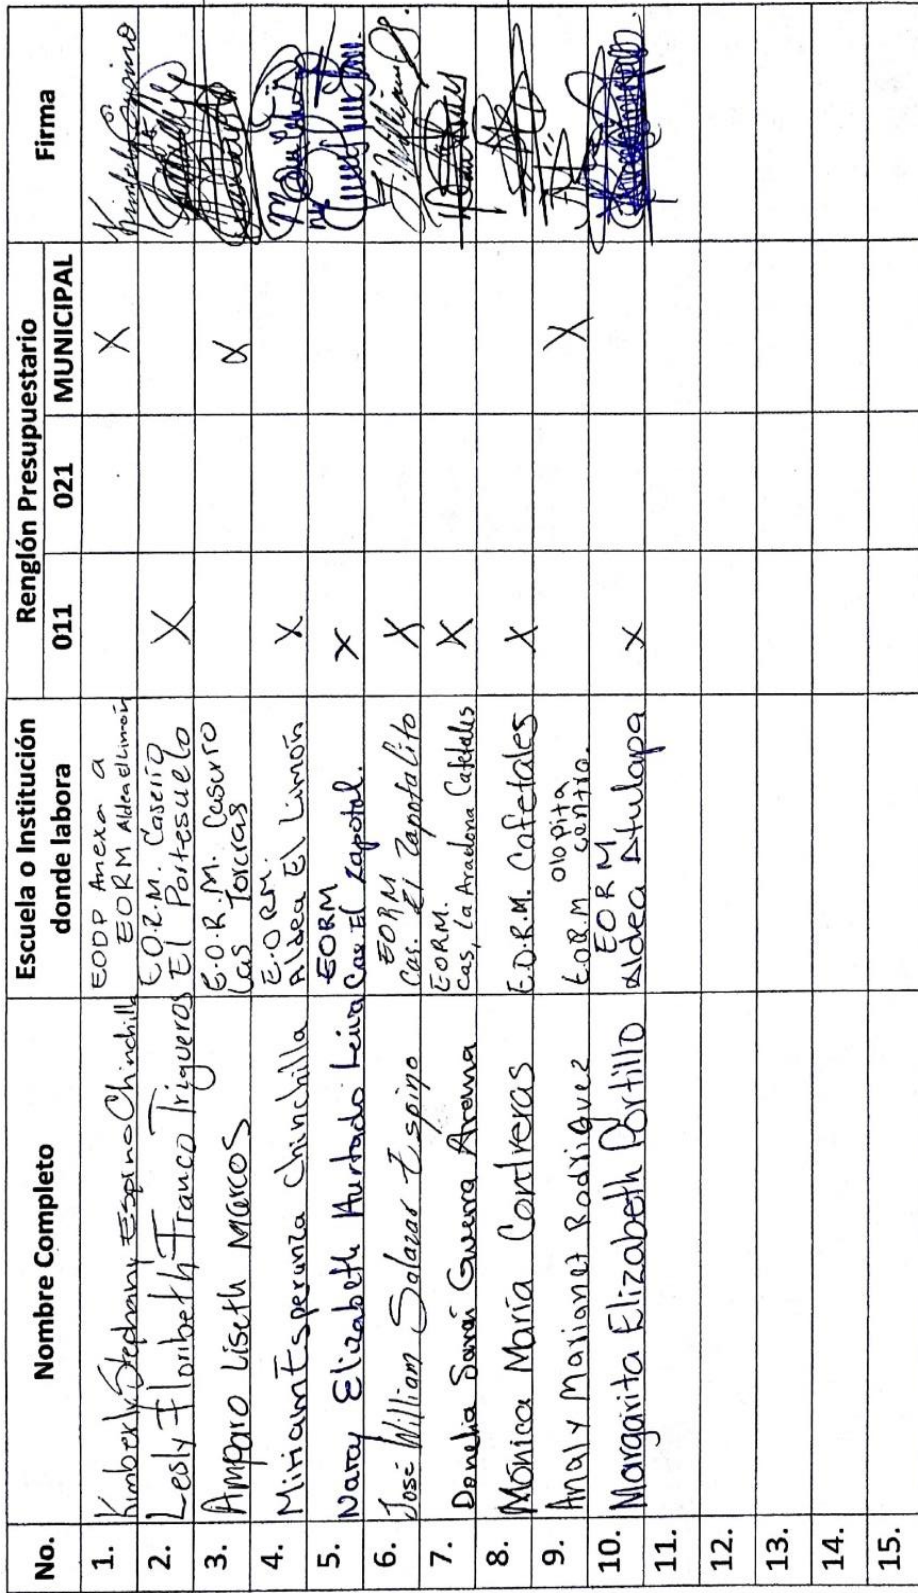 No. Nombre Completo Escuela o Institución donde labora Renglón Presupuestario Firma
011 021 MUNICIPAL
1. Kimberly Stephany Espino Chinchilla EODP Anexa a EORM Aldea el Limón X
2. Lesly Floribeth Franco Trigueros E.O.R.M. Caserío El Portesuelo X
3. Amparo Liseth Marcos E.O.R.M. Caserío Las Torcras X
4. Miriam Esperanza Chinchilla E.ORM. Aldea El Limón X
5. Narcy Elizabeth Hurtado Leiva EORM Cas. El Zapotal. X
6. José William Salazar Espino EORM Cas. El Zapotalito X J. William S.
7. Donelia Saraí Guerra Arana EORM. Cas, La Aradona Cafetales X
8. Mónica María Contreras E.O.R.M. Cafetales X
9. Analy Marianet Rodríguez E.O.R.M Olopita centro. X
10. Margarita Elizabeth Portillo EORM Aldea Atulapa X
11.
12.
13.
14.
15.